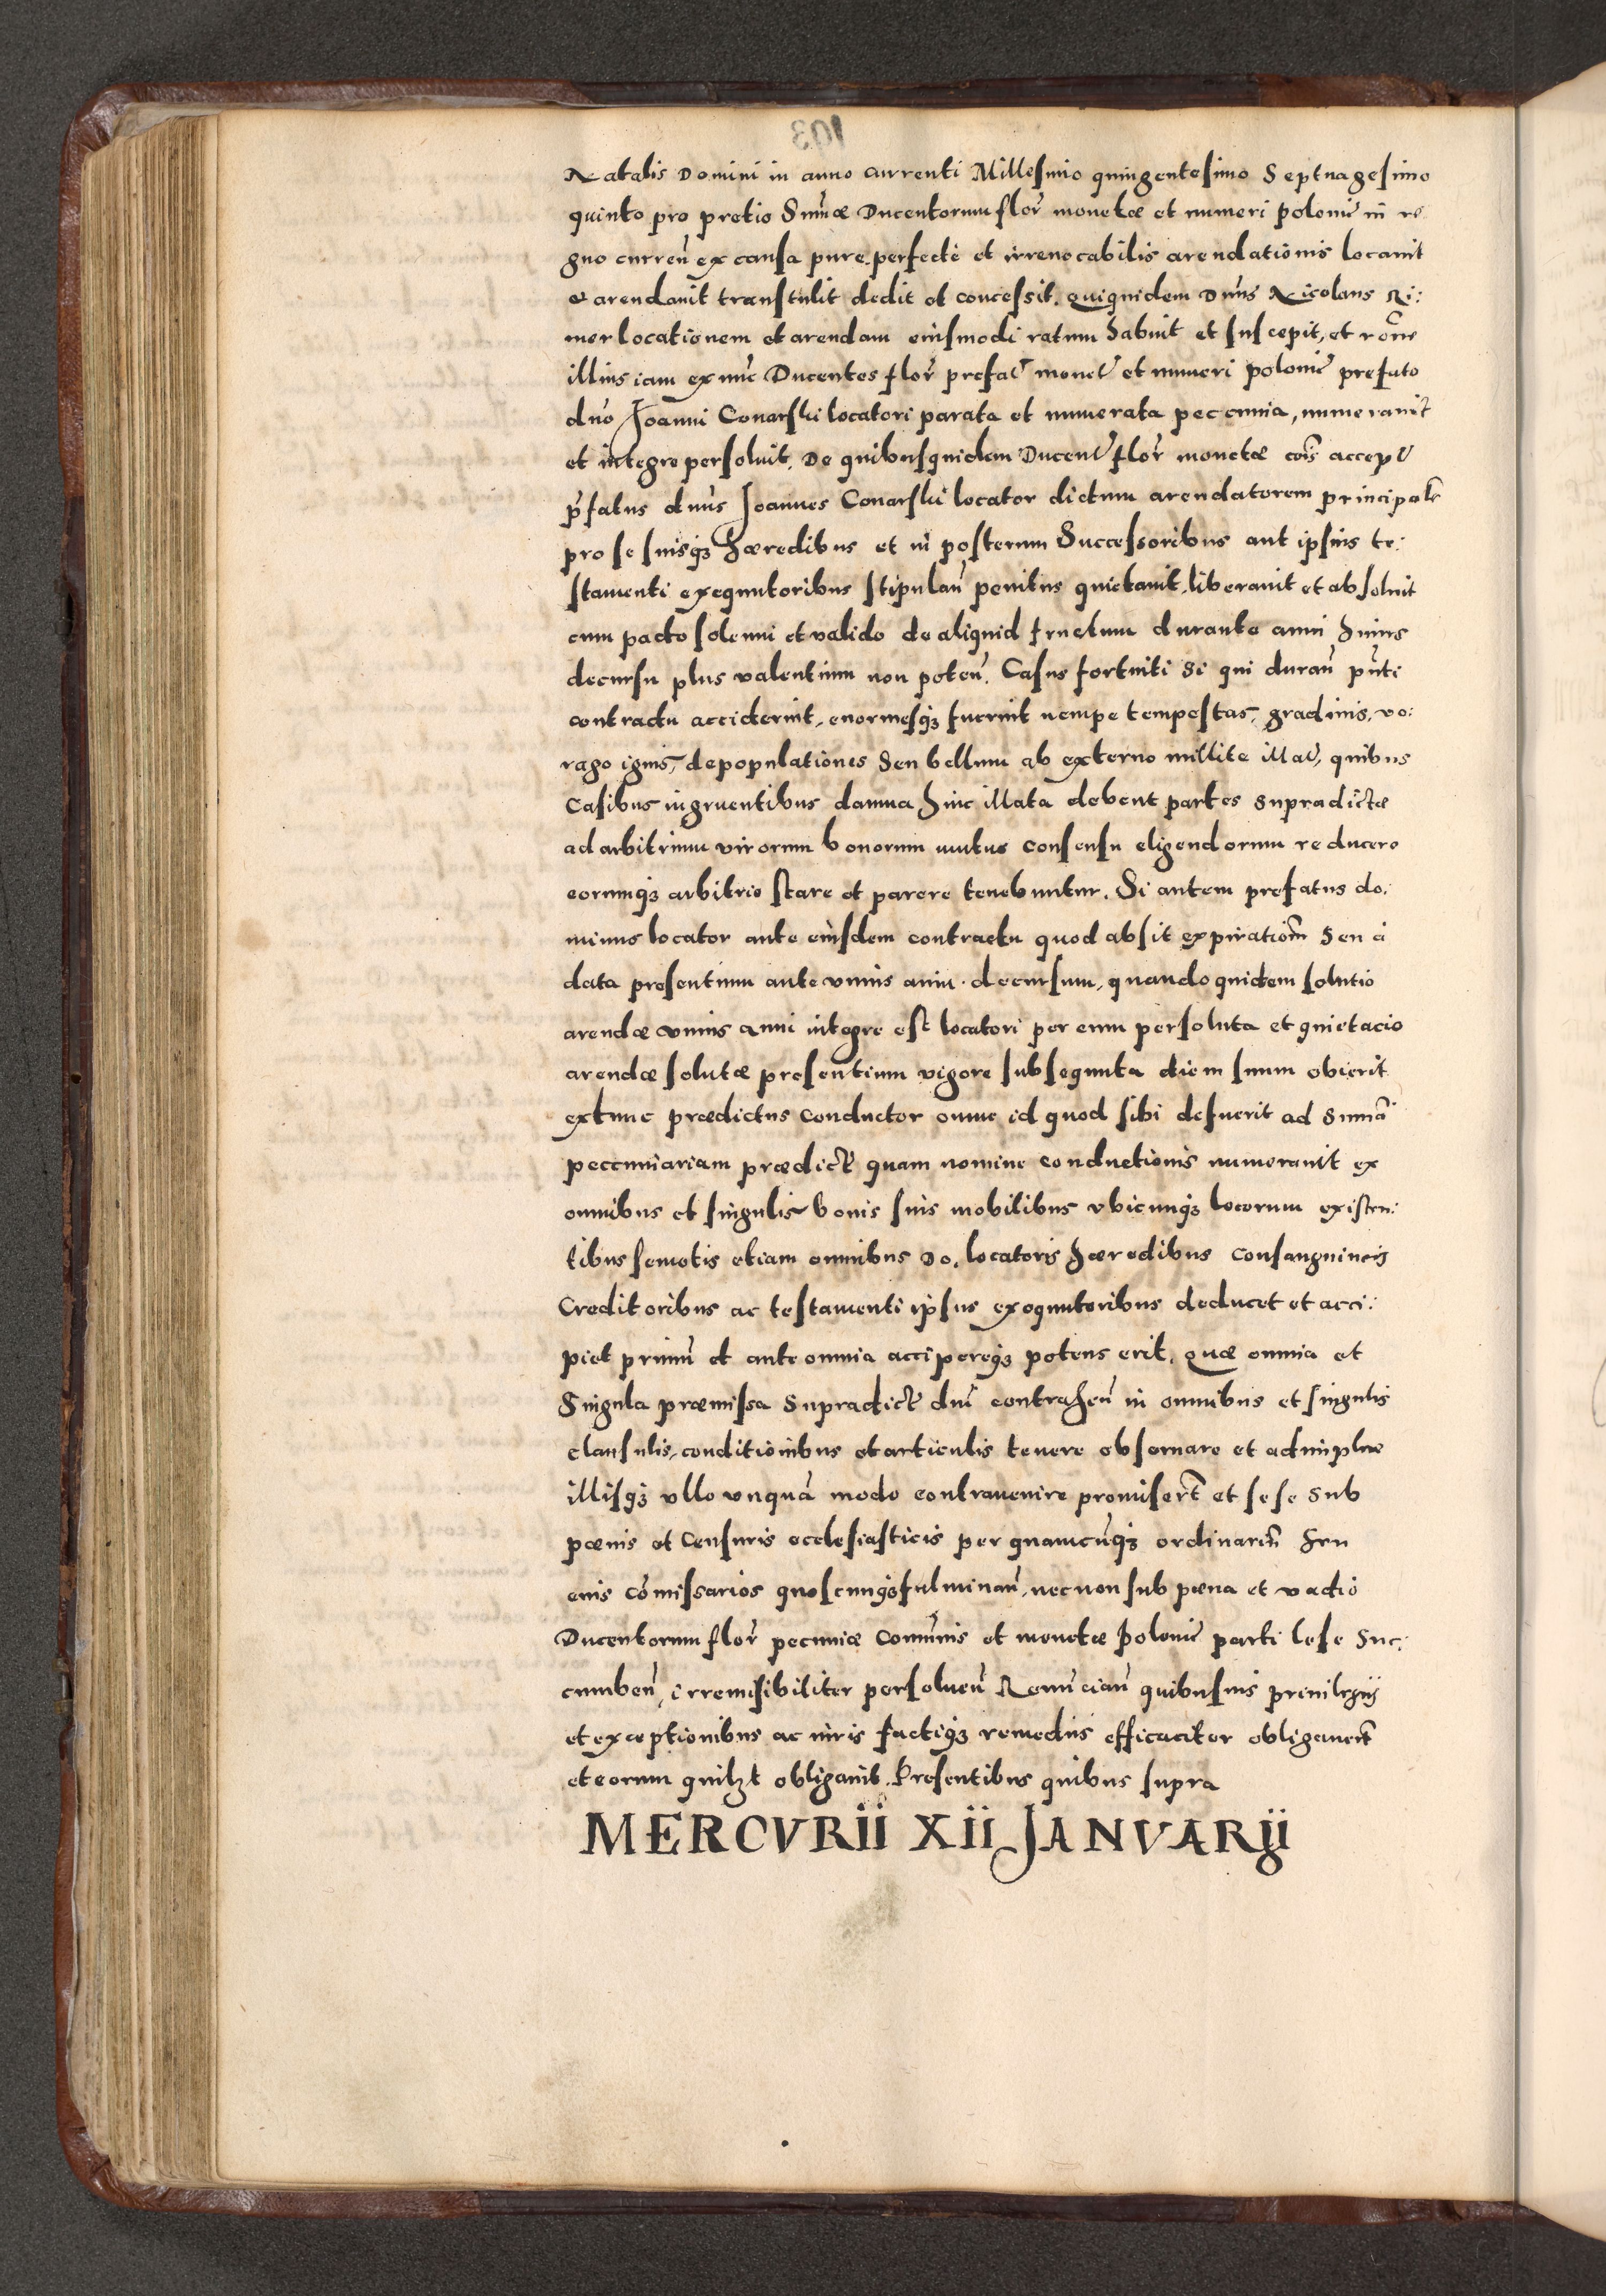 103
Natalis Domini in anno currenti Millesimo quingentesimo Septuagesimo
quinto pro pretio Sum̃æ Ducentorum flor̃ monetæ et numeri poloniẽ in re
gno curreñ ex causa pure perfecte et irreuocabilis arendationis locauit
et arendauit transtulit dedit et concessit. Quiquidem Dñus Nicolaus Ri:
mer locationem et arendam eiusmodi ratum habuit et suscepit, et rõne
illius iam ex nũc Ducentos flor̃ prefat̃ monet̃ et numeri poloniẽ prefato
dño Joanni Conarski locatori parata et numerata peccunia, numerauit
et integre persoluit. De quibusquidem Ducent̃ flor̃ monetæ cõis accept̃
p̃fatus dñus Joannes Conarski locator dictum arendatorem principalẽ
pro se suisqꝫ hæredibus et in posterum Successoribus aut ipsius te:
stamenti exequutoribus stipulañ penitus quietauit, liberauit et absoluit
cum pacto solenni et valido de aliquid fructuum durante anni huius
decursu plus valentium non poteñ. Casus fortuiti Si qui durañ pñti
contractu acciderint, enormesqꝫ fuerint nempe tempestas, gradinis, vo:
rago ignis, depopulationes Seu bellum ab externo millite illat̃, quibus
Casibus ingruentibus damna hinc illata debent partes supradictæ
ad arbitrium virorum bonorum mutuo consensu eligendorum reducere
eorumqꝫ arbitrio stare et parere tenebuntur. Si autem prefatus do:
minus locator ante eiusdem contractu quod absit expiratiõm Seu a
data presentium ante vnius anni decursum, quandoquidem solutio
arendæ vnius anni integre est locatori per eum persoluta et quietacio
arendæ solutæ presentium vigore subsequuta diem suum obierit
extunc prædictus conductor omne id quod sibi defuerit ad Sum̃ã
peccuniariam prædict̃ quam nomine conductionis numerauit ex
omnibus et singulis bonis suis mobilibus vbicunqꝫ locorum existen:
tibus semotis etiam omnibus Do. locatoris hæredibus consanguineis
Creditoribus ac testamenti ipsius exequutoribus deducet et acci:
piet primũ et ante omnia accipereqꝫ potens erit. Quæ omnia et
Singula præmissa Supradict̃ dñi contraheñ in omnibus et singulis
clausulis, conditionibus et articulis tenere obseruare et adimplere
illisqꝫ vllo vnquã modo contrauenire promiserũt et sese Sub
pœnis et Censuris ecclesiasticis per quamcũqꝫ ordinariũ seu
eius cõmissarios quoscunqꝫ fulminañ, necnon sub pœna et vadio
Ducentorum flor̃ pecuniæ Com̃unis et monetæ Poloniẽ parti lese Suc:
cumbeñ, irremisibiliter persolueñ Renunciañ quibusuis priuilegijs
et exceptionibus ac iuris factiqꝫ remediis efficaciter obligauerũt
et eorum quilꝫt obligauit. Presentibus quibus supra
MERCVRII XII JANVARII